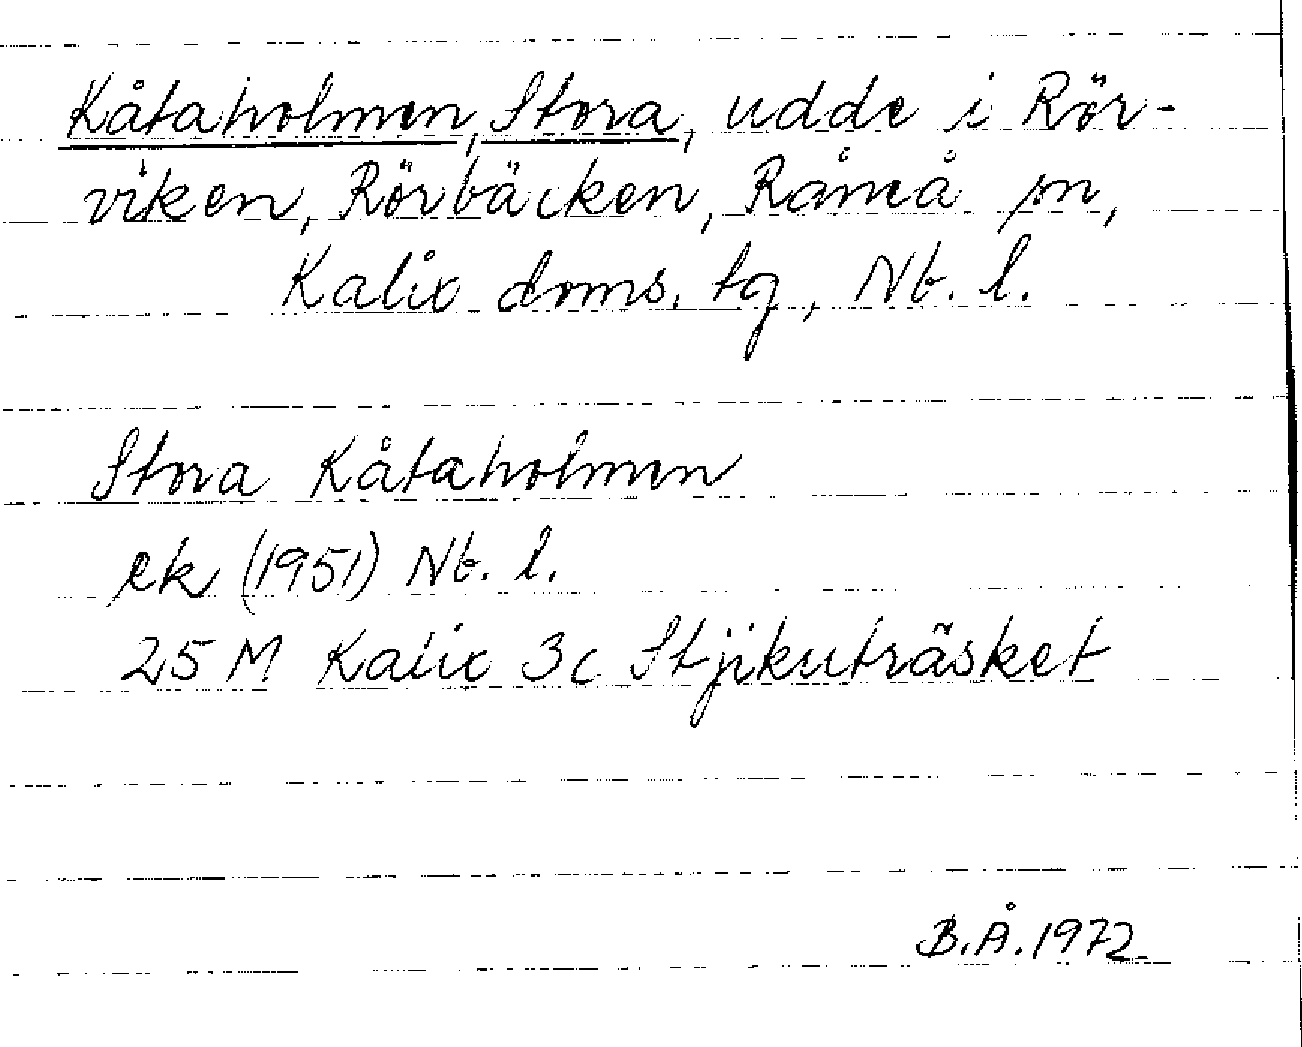 Kåtaholmen, Stora, udde i Rör-
viken, Rörbäcken, Råneå sn,
Kalix doms. tg, Nb. l.
Stora Kåtaholmen
ek (1951) Nb. l.
25 M Kalix 3c Stjikuträsket
B.Å. 1972